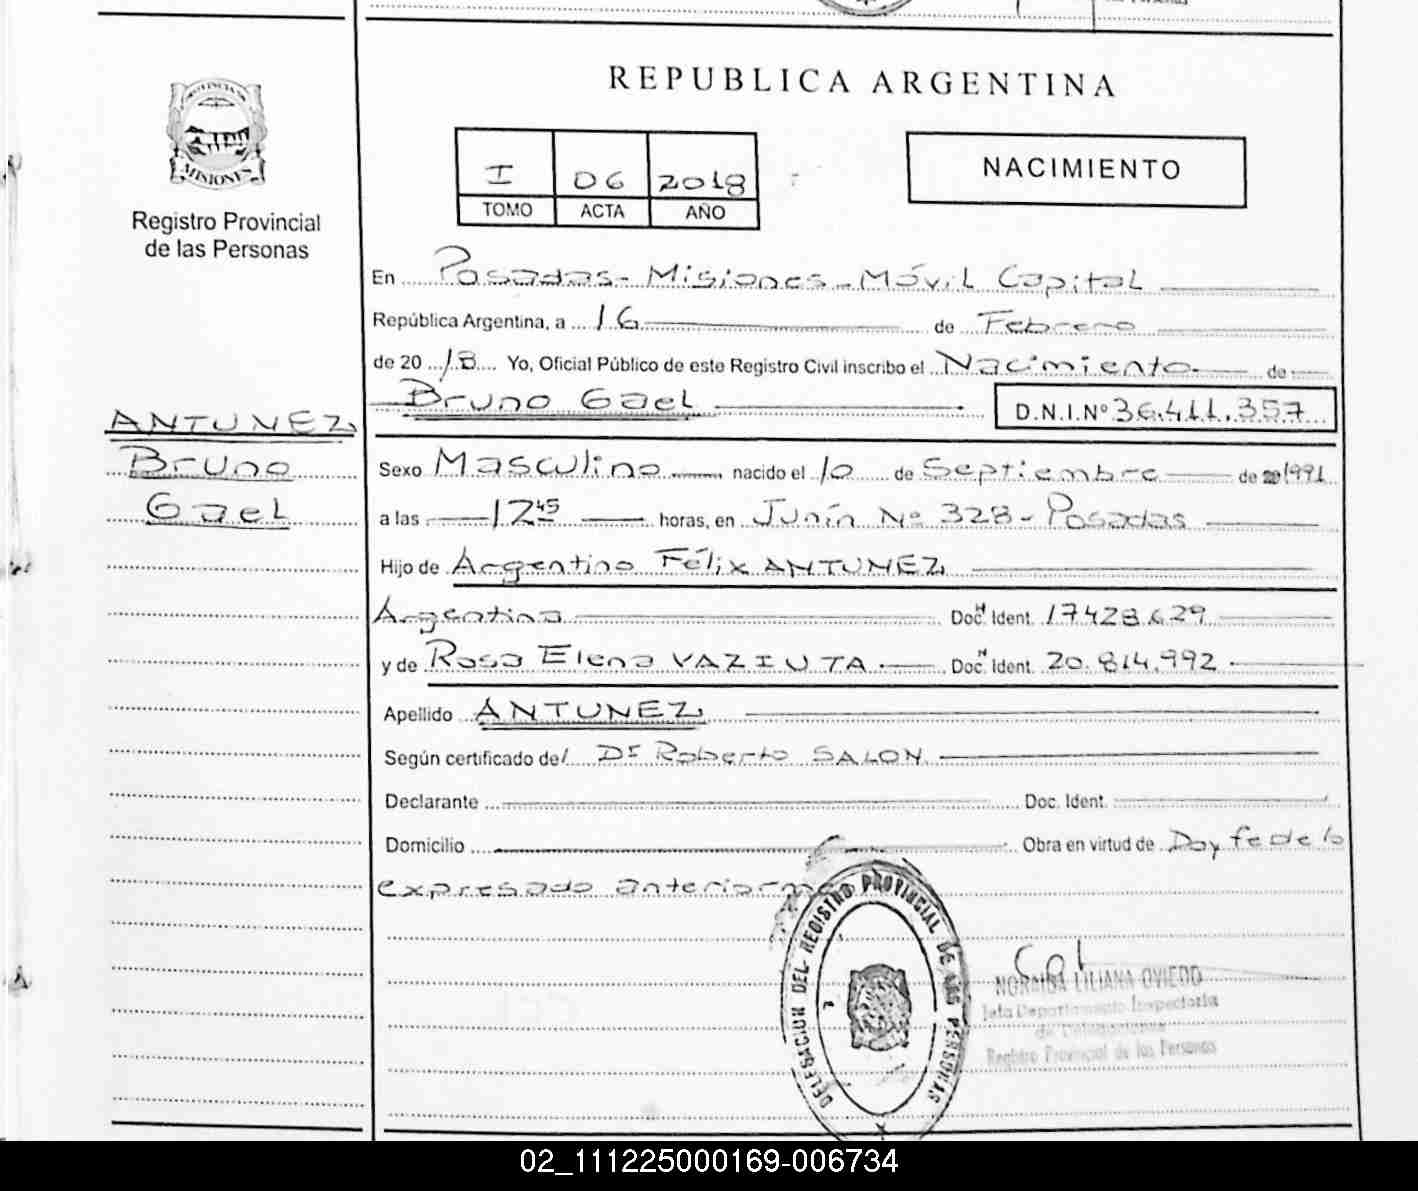 REPUBLICA ARGENTINA
PROVINCIA DE
MISIONES
Registro Provincial
de las Personas
I 06 2018
TOMO ACTA AÑO
NACIMIENTO
En Posadas - Misiones - Móvil Capital
República Argentina, a 16 de Febrero
de 2018 Yo, Oficial Público de este Registro Civil inscribo el Nacimiento de
Bruno Gael D.N.I.Nº 36.411.357
ANTUNEZ
Bruno
Gael
Sexo Masculino nacido el 10 de Septiembre de 1991
a las 12 45 horas, en Junín Nº 328 - Posadas
Hijo de Argentino Félix ANTUNEZ
Argentina Doc. Ident. 17.428.629
y de Rosa Elena VAZIUTA Doc. Ident. 20.814.992
Apellido ANTUNEZ
Según certificado del Dr Roberto SALON
Declarante Doc. Ident.
Domicilio Obra en virtud de Doy fe de lo
expresado anteriorme
DELEGACION DEL REGISTRO PROVINCIAL DE LAS PERSONAS
LILIANA OVIEDO
Jefa Departamento Inspectoria
de Delegaciones
Registro Provincial de las Personas
02_111225000169-006734